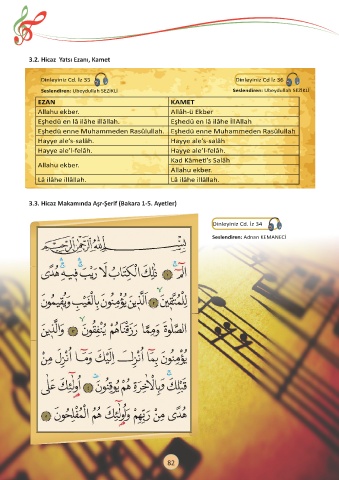 3.2. Hicaz Yatsı Ezanı, Kamet
Dinleyiniz Cd. İz 35
Seslendiren: Ubeydullah SEZİKLİ
Dinleyiniz Cd İz 36
Seslendiren: Ubeydullah SEZİKLİ
EZAN	KAMET
Allahu ekber.	Allâh-ü Ekber
Eşhedü en lâ ilâhe illâllah.	Eşhedü en lâ ilâhe İllAllah
Eşhedü enne Muhammeden Rasûlullah.	Eşhedü enne Muhammeden Rasûlullah
Hayye ale's-salâh.	Hayye ale's-salâh
Hayye ale'l-felâh.	Hayye ale'l-felâh.
Allahu ekber.	Kad Kâmet's Salâh
Allahu ekber.
Lâ ilâhe illâllah.	Lâ ilâhe illâllah.
3.3. Hicaz Makamında Aşr-Şerif (Bakara 1-5. Ayetler)
Dinleyiniz Cd. İz 34
Seslendiren: Adnan KEMANECİ
بِسْمِ اللّٰهِ الرَّحْمٰنِ الرَّحِيمِ
الٓمٓ ۝ ذٰلِكَ الْكِتَابُ لَا رَيْبَ فِيهِ هُدًى
لِلْمُتَّقِينَ ۝ الَّذِينَ يُؤْمِنُونَ بِالْغَيْبِ وَيُقِيمُونَ
الصَّلٰوةَ وَمِمَّا رَزَقْنَاهُمْ يُنْفِقُونَ ۝ وَالَّذِينَ
يُؤْمِنُونَ بِمَٓا اُنْزِلَ اِلَيْكَ وَمَٓا اُنْزِلَ مِنْ
قَبْلِكَ وَبِالْاٰخِرَةِ هُمْ يُوقِنُونَ ۝ اُو۬لٰٓئِكَ عَلٰى
هُدًى مِنْ رَبِّهِمْ وَاُو۬لٰٓئِكَ هُمُ الْمُفْلِحُونَ ۝
82